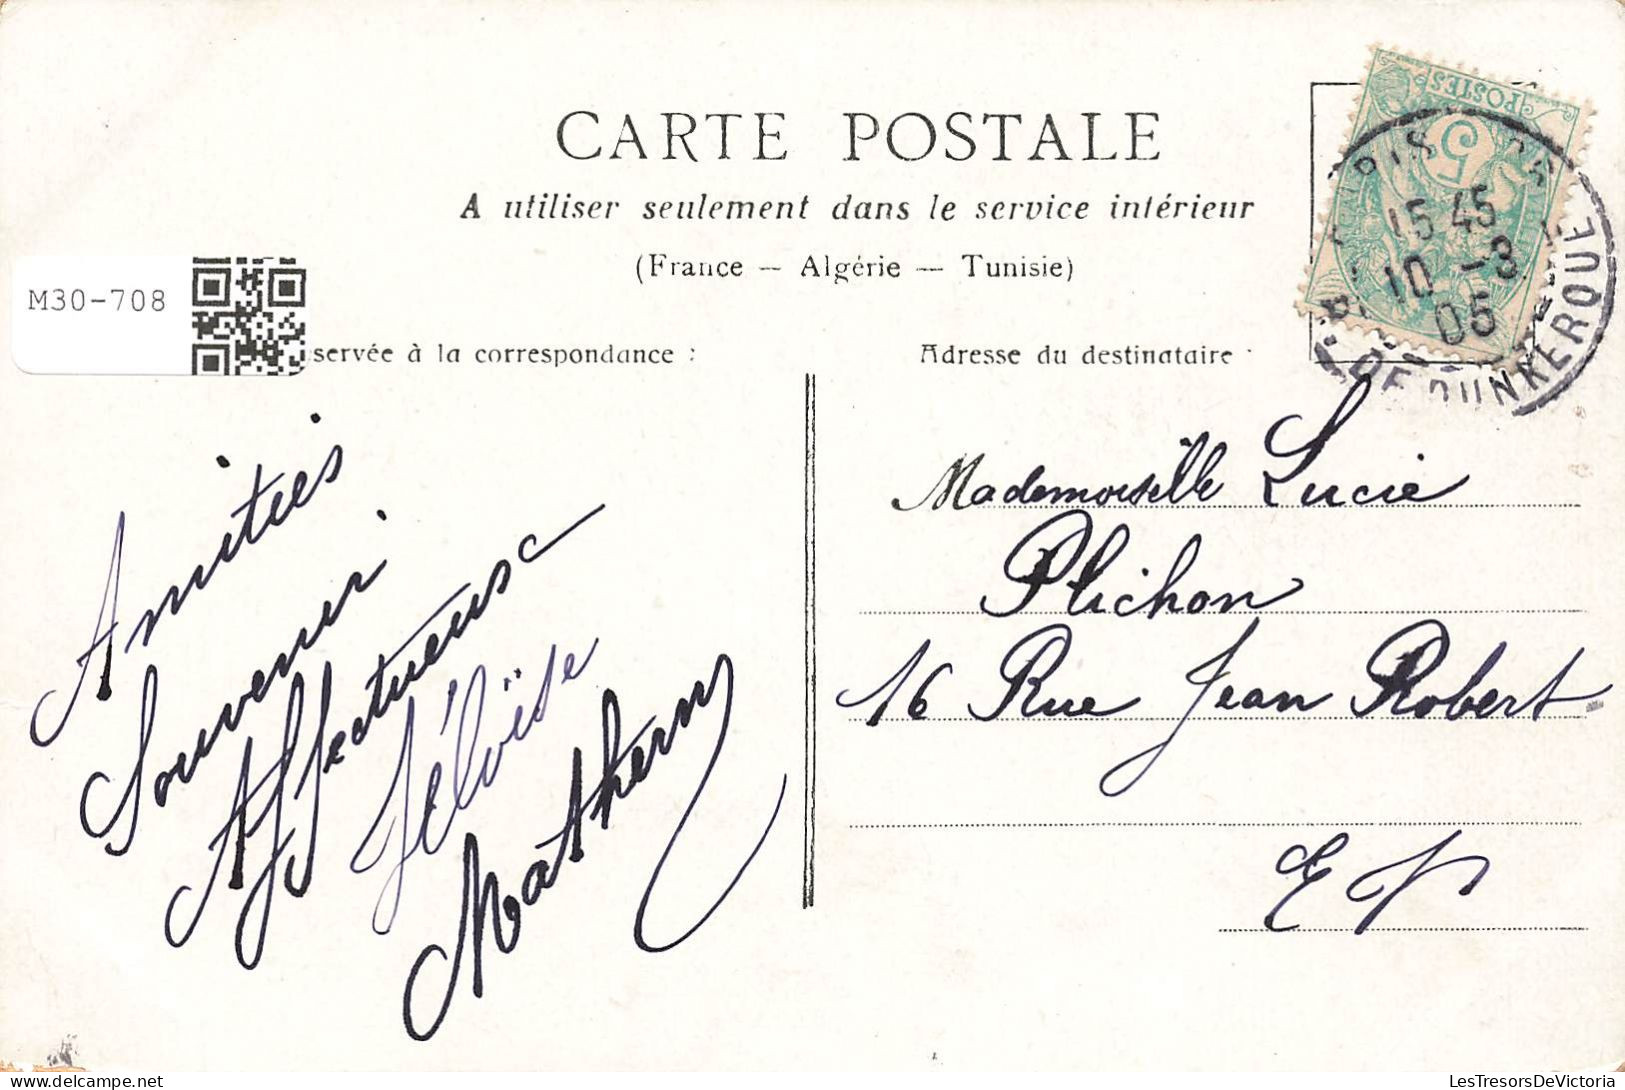 CARTE POSTALE
A utiliser seulement dans le service intérieur
(France — Algérie — Tunisie)
M30-708
servée à la correspondance :
Adresse du destinataire
POSTES
5
15 45
10 -3
05
DE DUNKERQUE
Amitiés
Souvenir
Affectueuse
Héloïse
Mathern
Mademoiselle Lucie
Plichon
16 Rue Jean Robert
EV
LesTresorsDeVictoria